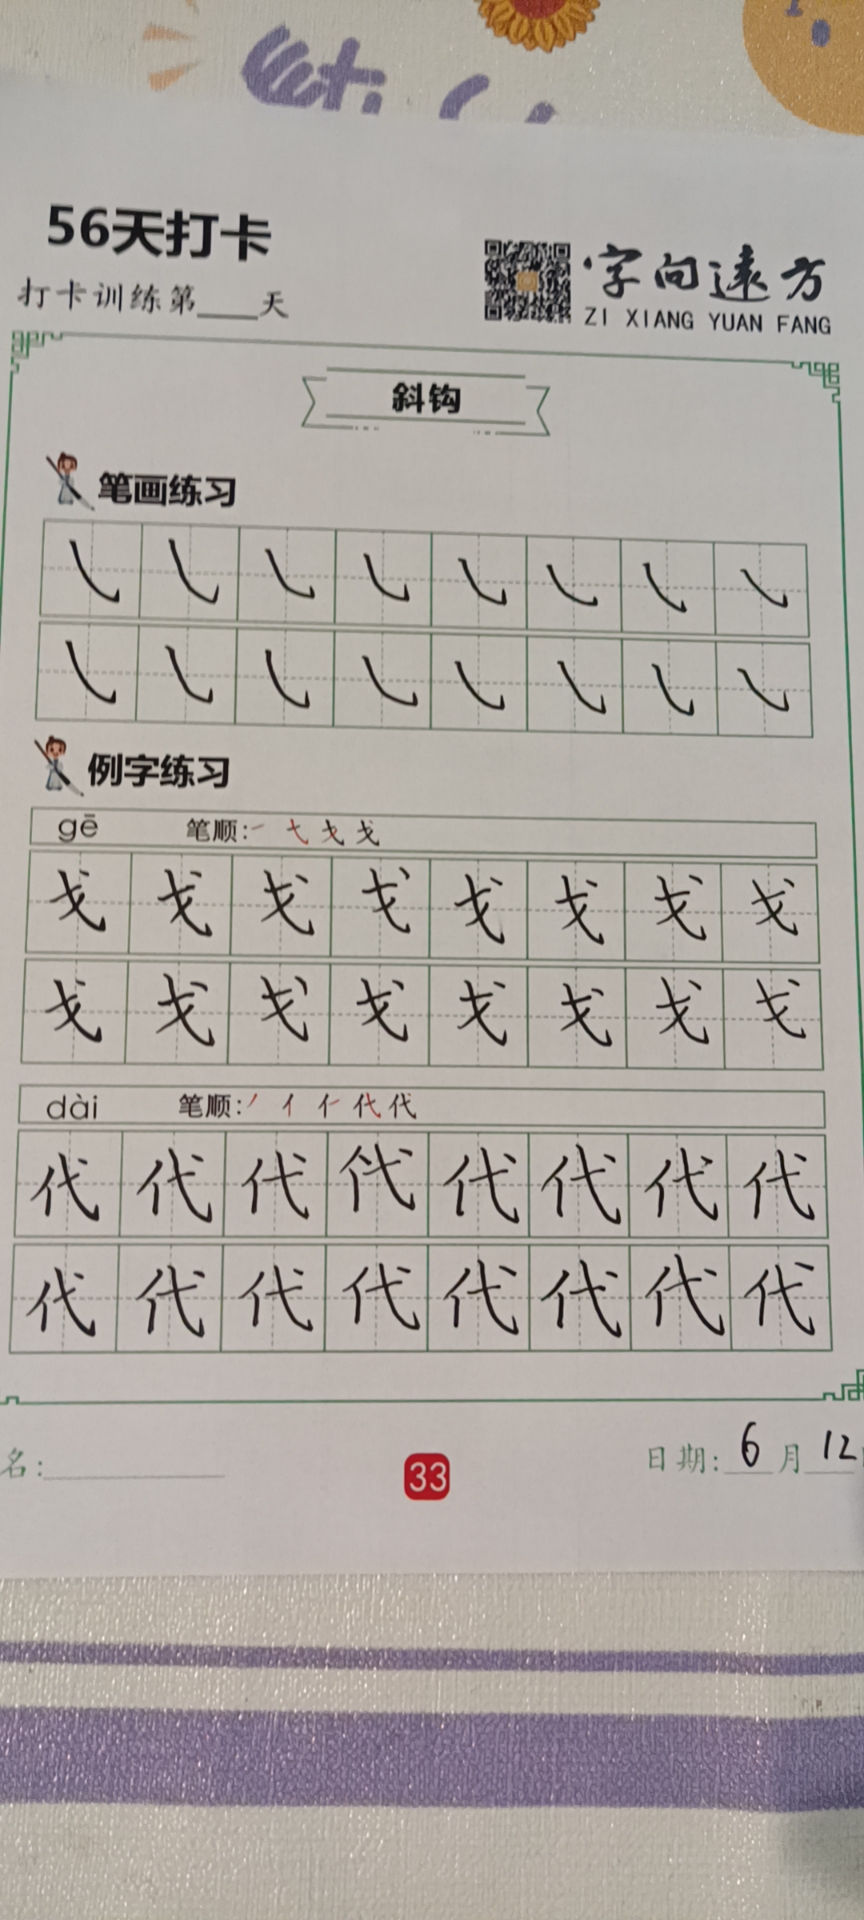 56天打卡
打卡训练第____天
字向遠方
ZI XIANG YUAN FANG
斜钩
笔画练习
㇂ ㇂ ㇂ ㇂ ㇂ ㇂ ㇂ ㇂
㇂ ㇂ ㇂ ㇂ ㇂ ㇂ ㇂ ㇂
例字练习
gē 笔顺: 一 七 戈 戈
戈 戈 戈 戈 戈 戈 戈 戈
戈 戈 戈 戈 戈 戈 戈 戈
dài 笔顺: 丿 亻 仁 代 代
代 代 代 代 代 代 代 代
代 代 代 代 代 代 代 代
名:
33
日期: 6 月 12